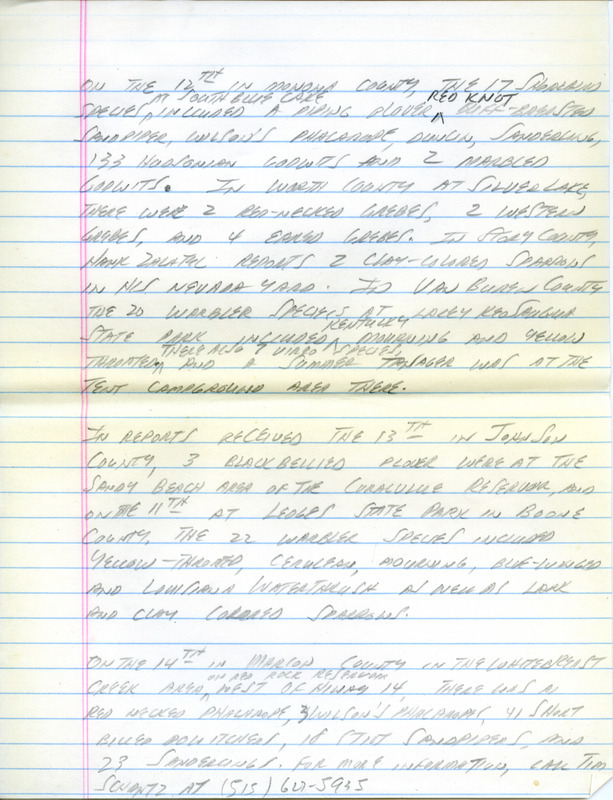 ON THE 12TH IN MONONA COUNTY, THE 17 SHOREBIRD
SPECIES AT SOUTH BLUE LAKE INCLUDED A PIPING PLOVER, RED KNOT, BUFF-BREASTED
SANDPIPER, WILSON'S PHALAROPE, DUNLIN, SANDERLING,
133 HUDSONIAN GODWITS AND 2 MARBLED
GODWITS. IN WORTH COUNTY AT SILVER LAKE,
THERE WERE 2 RED-NECKED GREBES, 2 WESTERN
GREBES, AND 4 EARED GREBES. IN STORY COUNTY,
HANK ZALATEL REPORTS 2 CLAY-COLORED SPARROWS
IN HIS NEVADA YARD. IN VAN BUREN COUNTY
THE 20 WARBLER SPECIES AT LACEY KEOSAUQUA
STATE PARK INCLUDED KENTUCKY, MOURNING AND YELLOW
THROATED, THERE ALSO VIREO SPECIES, AND A SUMMER TANAGER WAS AT THE
TENT CAMPGROUND AREA THERE.
IN REPORTS RECEIVED THE 13TH IN JOHNSON
COUNTY, 3 BLACKBELLIED PLOVER WERE AT THE
SANDY BEACH AREA OF THE CORALVILLE RESERVOIR, AND
ON THE 11TH AT LEDGES STATE PARK IN BOONE
COUNTY, THE 22 WARBLER SPECIES INCLUDED
YELLOW-THROATED, CERULEAN, MOURNING, BLUE-WINGED
AND LOUISIANA WATERTHRUSH AS WELL AS LARK
AND CLAY COLORED SPARROWS.
ON THE 14TH IN MARION COUNTY IN THE WHITEBREAST
CREEK AREA ON RED ROCK RESERVOIR, WEST OF HIWAY 14, THERE WAS A
RED NECKED PHALAROPE, 3 WILSON'S PHALAROPES, 41 SHORT
BILLED DOWITCHERS, 18 STILT SANDPIPERS, AND
23 SANDERLINGS. FOR MORE INFORMATION, CALL TIM
SCHANTZ AT (515)